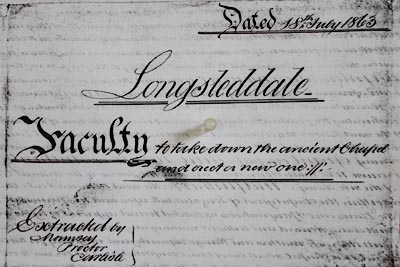 Dated 18th July 1863
Longsleddale
Faculty to take down the ancient Chapel
and erect a new one ://:
Extracted by
Mounsey
Proctor
Carlisle